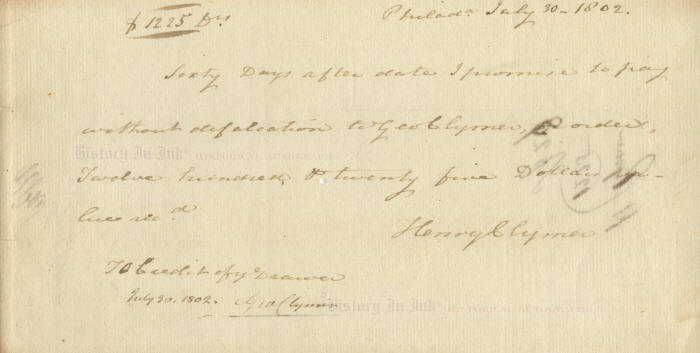 $ 1225 Drs
Philada. July 30 - 1802.
Sixty Days after date I promise to pay
without defalcation to Geo Clymer, or order,
Twelve hundred & twenty five Dollars va-
lue recd
Henry Clymer
To Credit of ye Drawer
July 30. 1802. Geo Clymer
History In Ink® HISTORICAL AUTOGRAPHS
History In Ink® HISTORICAL AUTOGRAPHS